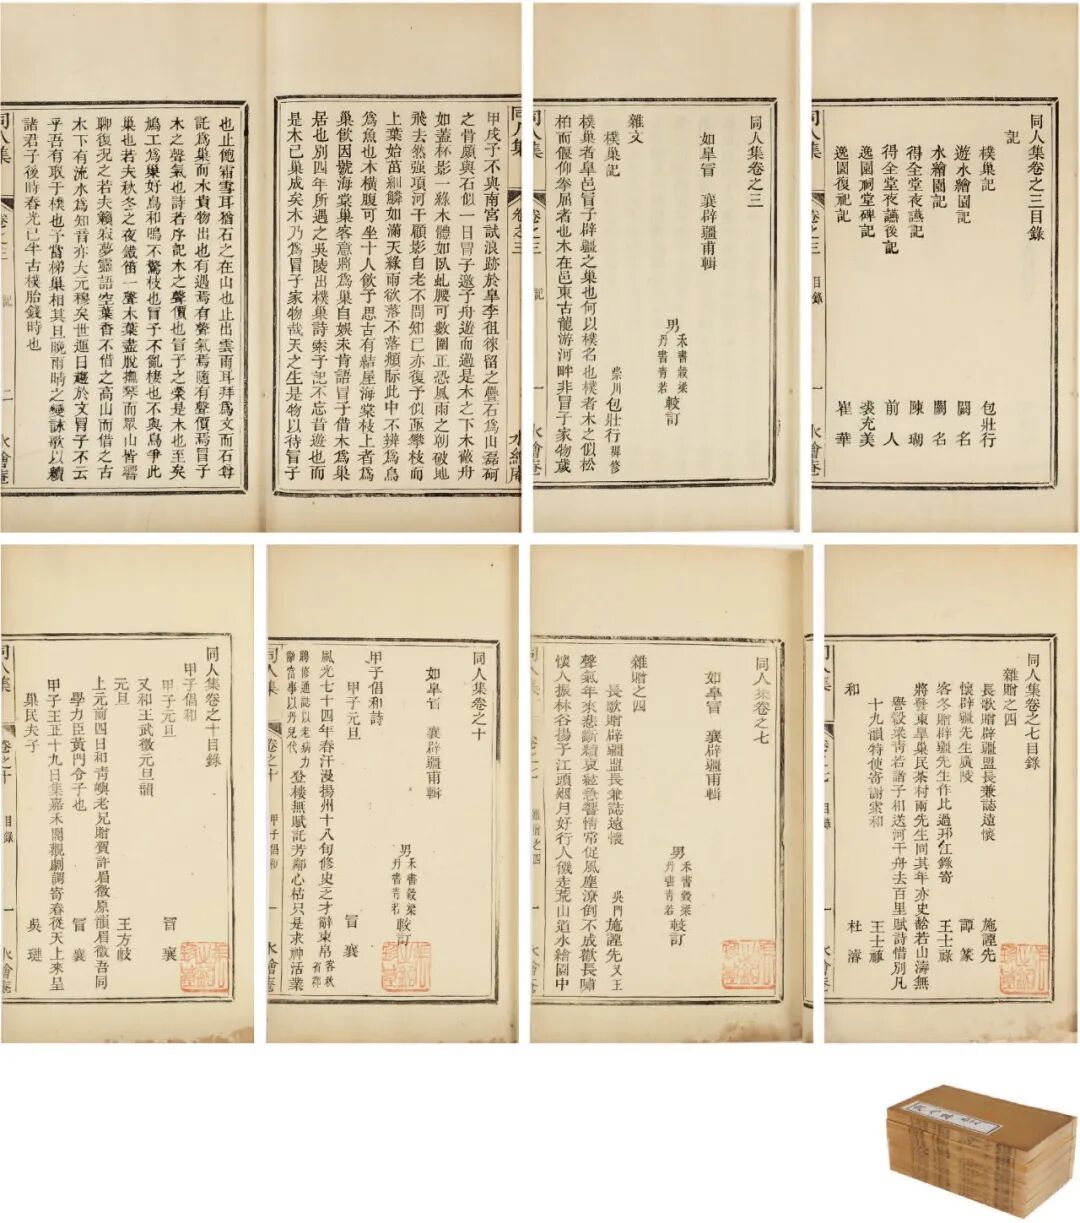 同人集卷之三目錄
記
樸巢記 包壯行
遊水繪園記 闕名
水繪園記 闕名
得全堂夜讌記 陳瑚
得全堂夜讌後記 前人
逸園祠堂碑記 裘充美
逸園復祀記 崔華
同人集 卷之三 目錄 一 水繪庵
同人集卷之三
如皋冒 襄辟疆甫輯
男 禾書穀梁 丹書青若 較訂
雜文
樸巢記 崇川包壯行稺修
樸巢者皐邑冒子辟疆之巢也何以樸名也樸者木之似松
柏而偃仰拳屈者也木在邑東古龍游河畔非冒子家物歲
同人集 卷之三 記 一 水繪庵
甲戌子不與南宮試浪跡於皐李徂徠留之疊石爲山磊砢
之骨頗與石似一日冒子邀予舟遊而過是木之下木蔽舟
如蓋杯影一綠木體如臥虬腰可數圍正恐風雨之朝破地
飛去然强項河干顧影自老不問知已亦復予似亟攀枝而
上葉始萬細鱗如滿天綠雨欲落不落頫眎此中不辨爲鳥
爲魚也木橫腹可坐十人飲予思古有結屋海棠枝上者爲
巢飲因號海棠巢客意將爲巢自娛未肯語冒子借木爲巢
居也別四年所遇之吳陵出樸巢詩索予記不忘昔遊也而
是木已巢成矣木乃爲冒子家物哉天之生是物以待冒子
也止飽霜雪耳猶石之在山也止出雲雨耳拜爲文而石尊
託爲巢而木貴物出也有遇焉有聲氣焉隨有聲價焉冒子
木之聲氣也詩若序記木之聲價也冒子之榮是木也至矣
鳩工爲巢好鳥和鳴不驚枝也冒子不亂棲也不與鳥爭此
巢也若夫秋冬之夜鐵笛一聲木葉盡脫撫琴而眾山皆響
聊復況之若夫籟寂夢靈語空葉香不借之高山而借之古
木下有流水爲知音亦大元穆矣世運日趨於文冒子不云
乎吾有取于樸也予當梯巢相其旦晩雨晴之變詠歌以續
諸君子後時春光已半古樸胎錢時也
同人集 卷之三 記 二 水繪庵
同人集卷之七目錄
雜贈之四
長歌贈辟疆盟長兼誌遠懷 施諲先
懷辟疆先生廣陵 譚篆
客冬贈辟疆先生作比過邗江錄寄 王士祿
將發東皐巢民茶村兩先生同其年亦史 餘若山濤無
譽穀梁靑若諸子相送河干舟去百里賦詩惜別凡
十九韻特使寄謝索和 王士祿
和 杜濬
同人集 卷之七 目錄 一 水繪庵
同人集卷之七
如皋冒 襄辟疆甫輯
男 禾書穀梁 丹書青若 較訂
雜贈之四
長歌贈辟疆盟長兼誌遠懷 吳門施諲先又王
聲氣年來悲斷續哀絃急響情常促風塵潦倒不成歡長嘯
懷人振林谷揚子江頭烟月好行人僟走荒山道水繪園中
同人集 卷之七 雜贈之四 一 水繪庵
同人集卷之十
如皋冒 襄辟疆甫輯
男 禾書穀梁 丹書青若 較訂
甲子倡和詩
甲子元旦 冒 襄
風光七十四年春汗漫揚州十八旬修史之才辭束帛客秋省郡
聘修通誌以老病力辭當事以丹兒代登樓無賦託芳鄰心枯只是求神活業
同人集 卷之十 甲子倡和 一 水繪庵
同人集卷之十目錄
甲子倡和
甲子元旦 冒 襄
又和王武徵元旦韻
元旦 王方岐
上元前四日和靑嶼老兄贈賀許眉微原韻眉微吾同
學力臣黃門令子也 冒 襄
甲子王正十九日集嘉禾閣觀劇謂寄春從天上來呈
巢民夫子 吳 璉
同人集 卷之十 目錄 一 水繪庵